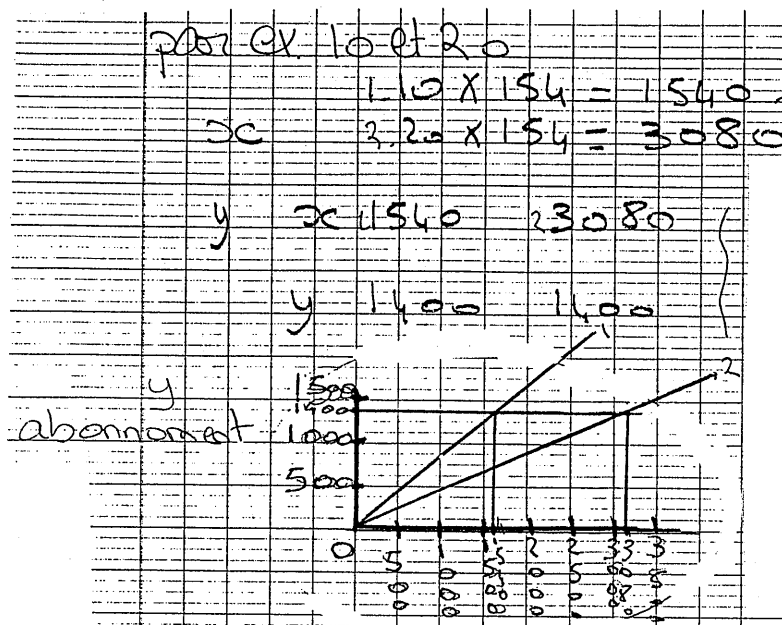 par ex. 10 et 20
1. 10 x 154 = 1540
x 2. 20 x 154 = 3080
y x 1 1540 2 3080
y 1400 1400
1
2
y 1500
1400
abonnoment 1000
500
0 500 1000 1500 1540 2000 2500 3000 3080 3500